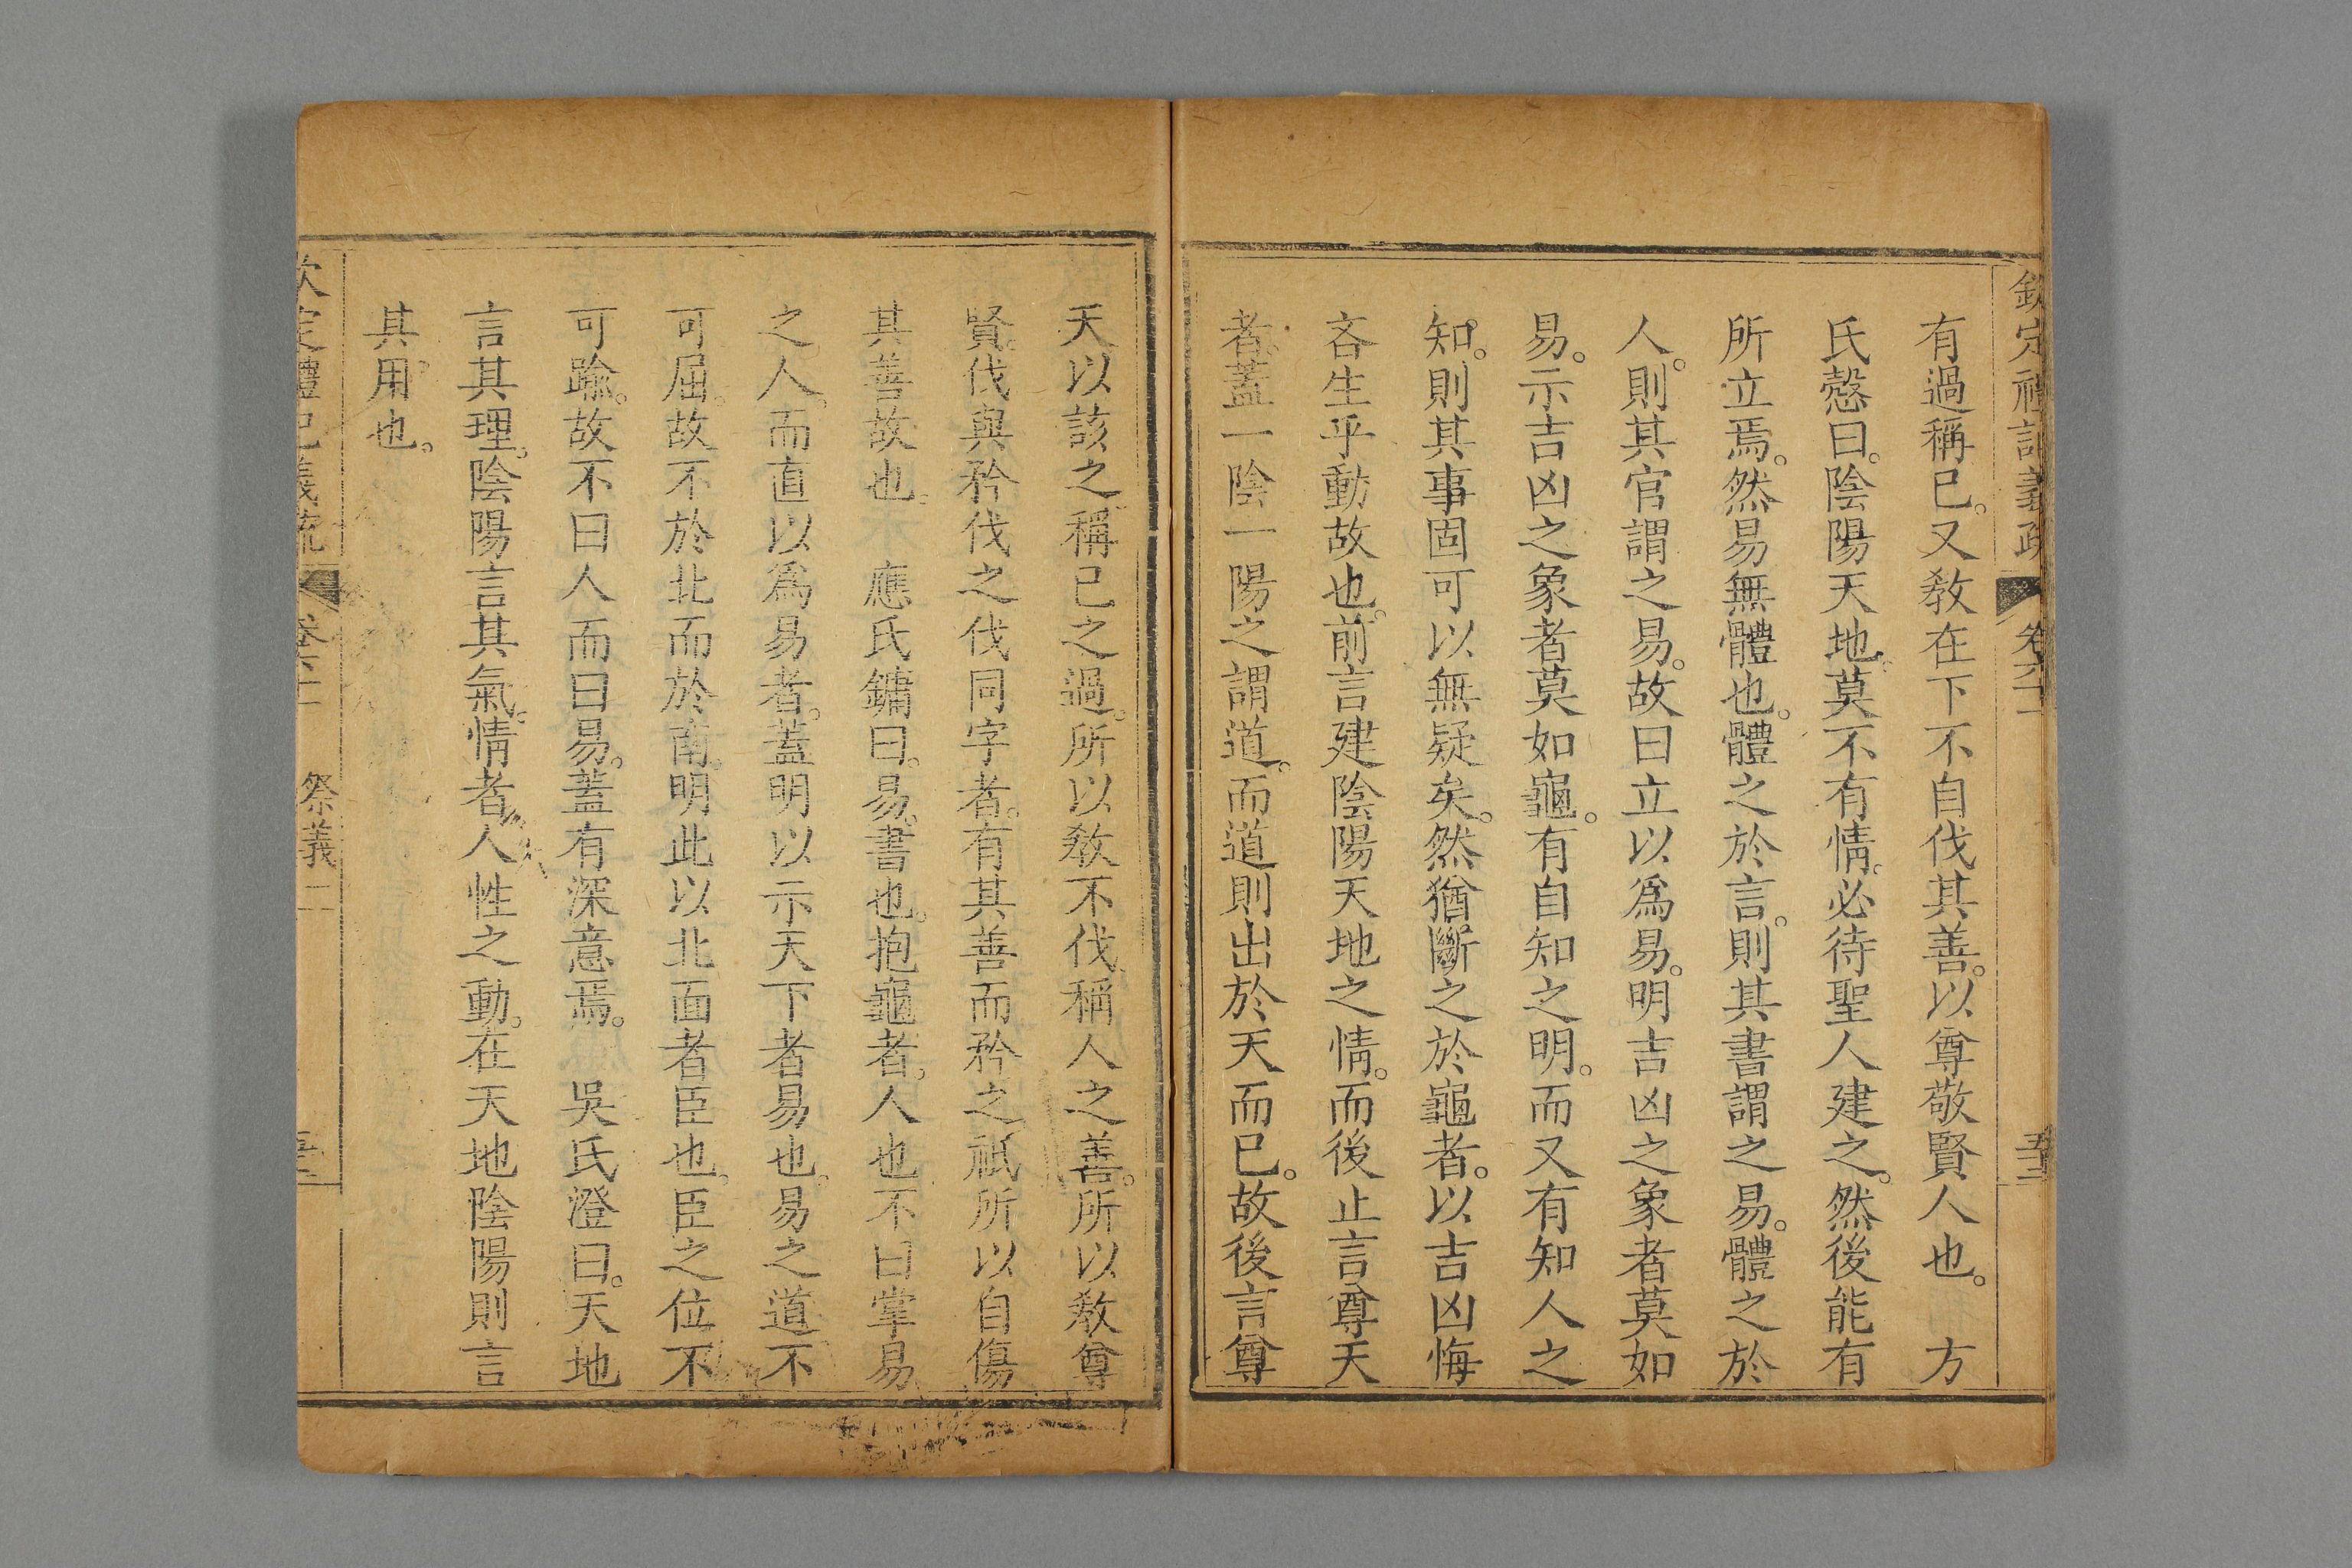 欽定禮記義疏 卷六十一
有過稱已。又敎在下不自伐其善。以尊敬賢人也。 方
氏慤曰。陰陽天地。莫不有情。必待聖人建之。然後能有
所立焉。然易無體也。體之於言。則其書謂之易。體之於
人。則其官謂之易。故曰立以爲易。明吉凶之象者莫如
易。示吉凶之象者莫如龜。有自知之明。而又有知人之
知。則其事固可以無疑矣。然猶斷之於龜者。以吉凶悔
吝生乎動故也。前言建陰陽天地之情。而後止言尊天
者。蓋一陰一陽之謂道。而道則出於天而已。故後言尊
天以該之。稱已之過。所以敎不伐。稱人之善。所以敎尊
賢。伐與矜伐之伐同字者。有其善而矜之。祇所以自傷
其善故也。 應氏鏞曰。易。書也。抱龜者。人也。不曰掌易
之人。而直以爲易者。蓋明以示天下者易也。易之道不
可屈。故不於北而於南。明此以北面者臣也。臣之位不
可踰。故不曰人而曰易。蓋有深意焉。 吳氏澄曰。天地
言其理。陰陽言其氣。情者。人性之動。在天地陰陽則言
其用也。
欽定禮記義疏 卷六十一 祭義二